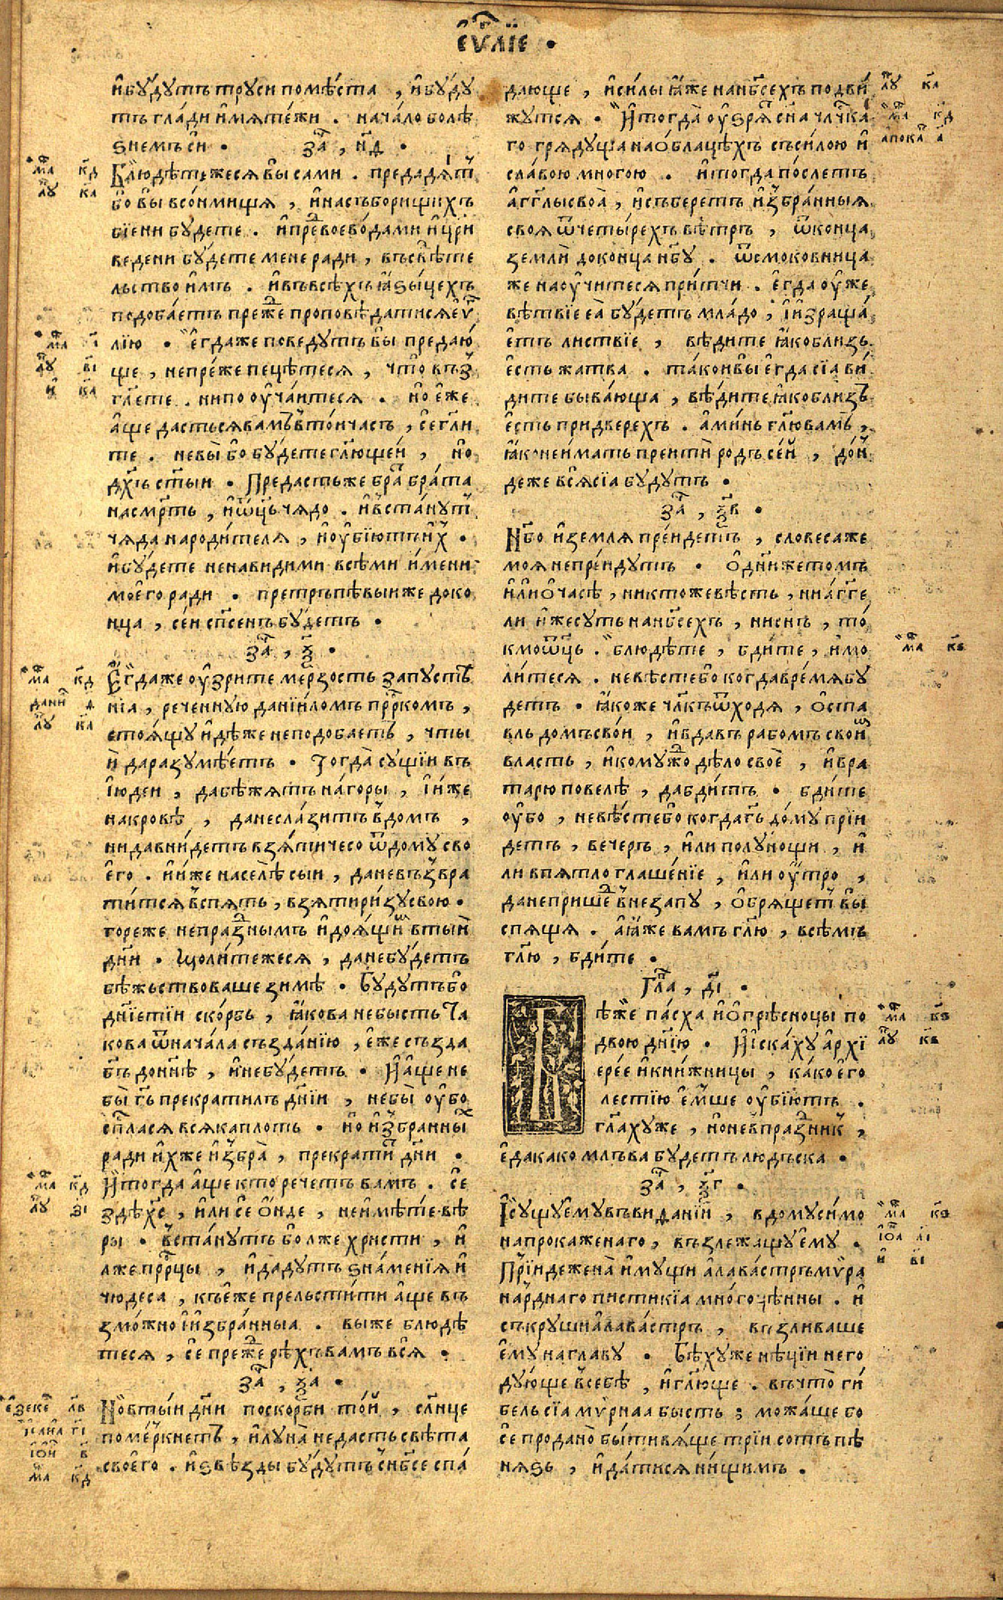 еѵⷢ҇лїе •
и҆бꙋдꙋтъ трꙋси помѣста , и҆бꙋдꙋ
тъ глади и҆мѧтежи . начало болѣ
ѕнемъ си • заⷱ҇ , н҃д •
Блюдѣтежесѧ вы сами . предадѧⷮ
бо вы всонмища , и҆насъборищихъ
бїени бꙋдете . и҆прⷣевоеводами и҆цр҃и
ведени бꙋдете мене ради , въсвѣте
льство и҆мъ . и҆въвсѣхъ ꙗ҆ѕыцехъ
подобаетъ преⷤе проповѣдатисѧ еѵⷢ҇
лїю • Е҆гдаже поведꙋтъ вы предаю
ще , непреже пецѣтесѧ , что въꙁ
гл҃ете . нипоꙋчаитесѧ . но е҆же
а҆ще дастьсѧвамъ втои часъ , се гл҃и
те . невы бо бꙋдете гл҃ющеи , но
дх҃ъ ст҃ыи • Предастьже браⷮ брата
насмрⷮть , и҆ѿц҃ь чѧдо . и҆въстанꙋⷮ
чѧда народителѧ , и҆оубїютъ и҆ⷯ •
и҆бꙋдете ненавидими всѣми и҆мени
моего ради • претръпѣвыиже доко
нца , сеи спⷭ҇енъ бꙋдетъ •
заⷱ҇ , ѯ҃ •
Е҆гдаже оузрите мерзость запꙋстѣ
нїа , реченнꙋю данїиломъ прⷪ҇ркомъ ,
стоѧщꙋ и҆дѣже неподобаетъ , чтыи
да разꙋмѣетъ • Тогда сꙋщїи въ
І҆юдеи , дабѣжатъ нагоры , і҆иже
накровѣ , данеслазитъ вдомъ ,
нидавнидетъ взѧти чесо ѿдомꙋ сво
его . и҆иже населѣ сыи , даневъꙁвра
титсѧ вспѧть , взѧти ризꙋ свою •
гореже непраꙁнымъ и҆доѧщиⷨ втыѧ
дн҃и • Молитежесѧ , данебꙋдетъ
бѣжьство ваше зимѣ • Бꙋдꙋтъ бо
дн҃їетїи скорбь , ꙗ҆кова небысть та
кова ѿначала създанїю , е҆же създа
бг҃ъ донн҃ѣ , и҆небꙋдетъ • И҆аще не
бы гь҃ прекратилъ дн҃їи , небы оубо
спⷭ҇ласѧ всѧка плоть . но и҆збранны
ради и҆хже и҆збра , прекрати дн҃и •
И҆тогда аще кто речетъ вамъ . се
здѣхс҃ , или се ондѣ , неимѣте вѣ
ры • въстанꙋтъ бо лже христи , и҆
лже прⷪ҇рцы , и҆дадꙋтъ ѕнаменїѧ и҆
чюдеса , къеже прельстити аще въ
зможно и҆збранныа . выже блюдѣ
тесѧ , се преⷤе рѣхъ вамъ всѧ •
заⷱ҇ , ѯ҃а •
Новтыи дн҃и поскорби тои , слн҃це
померкнетъ , и҆лꙋна недасть свѣта
своего . и҆ѕвѣзды бꙋдꙋтъ сн҃бсе спа
дающе , и҆силы ꙗ҆же нанбс҃ехъ подви
жꙋтсѧ • И҆тогда оуѕрѧⷮ сн҃а чл҃чка
го грѧдꙋща наоблацѣхъ съсилою и҆
славою многою . и҆тогда послетъ
аггл҃ы своа , и҆съберетъ и҆збранныѧ
своѧ ѿчетырехъ вѣтръ , ѿконца
земли доконца нб҃ꙋ . ѿсмоковница
же наоучитесѧ притчи . е҆гда оуже
вѣтвїе еа бꙋдетъ младо , и҆ізраща
етъ листвїе , вѣдите ꙗ҆коблизъ
есть жатва . такоивы егда сїа ви
дите бывающа , вѣдите ꙗ҆коблизъ
есть придверехъ . аминь гл҃ю вамъ ,
ꙗ҆ко неимать преити родъ сеи , дои
деже всѧ сїа бꙋдꙋтъ •
заⷱ҇ , ѯ҃в •
Нб҃о и҆землѧ преидетъ , словесаже
моѧ непреидꙋтъ • О дн҃иже томъ
и҆ли о часѣ , никтоже вѣсть , ни агге
ли и҆жесꙋть нанбс҃ехъ , нисн҃ъ , то
кмоѿц҃ь . блюдѣте , бдите , и҆мо
литесѧ . невѣстебо когда времѧбꙋ
детъ • ꙗ҆коже чл҃къ ѿходѧ , оста
вль домъ свои , и҆вдавъ рабомъ своиⷨ
власть , и҆комꙋжⷣо дѣло свое , и҆вра
тарю повелѣ , дабдитъ • бдите
оубо , невѣстебо когда гь҃ домꙋ прїи
детъ , вечеръ , или полꙋнощи , и҆
ли впѣтлоглашенїе , или оутро ,
данепришеⷣ внезапꙋ , обрѧщетъ вы
спѧща . аꙗ҆же вамъ гл҃ю , всѣмъ
гл҃ю , бдите •
Глаⷡ҇ , д҃і •
Бѣже пасха и҆опрѣсноцы по
двою дн҃їю • И҆іскахꙋ архї
ерее и҆книжницы , како его
лестїю емше оубїютъ .
гл҃ахꙋже , нопевпраꙁникъ ,
едакако млъва бꙋдетъ людьска •
заⷱ҇ , ѯ҃г •
І҆сꙋщꙋ емꙋ въвиданїи , вдомꙋ симо
на прокаженаго , възлежащꙋ емꙋ .
Прїиде жена и҆мꙋщи алавастръ мѵра
нарднаго пистикїа многоцѣнны . и҆
съкрꙋши алавастръ , възливаше
емꙋ наглавꙋ • Бѣхꙋже нѣцїи него
дꙋюще всебѣ , и҆гл҃юще . въчто ги
бель сїа мѵрнаа бысть ; можаше бо
се продано быти вѧще трїи сотъ пѣ
нѧѕь , и҆датисѧ нищимъ .